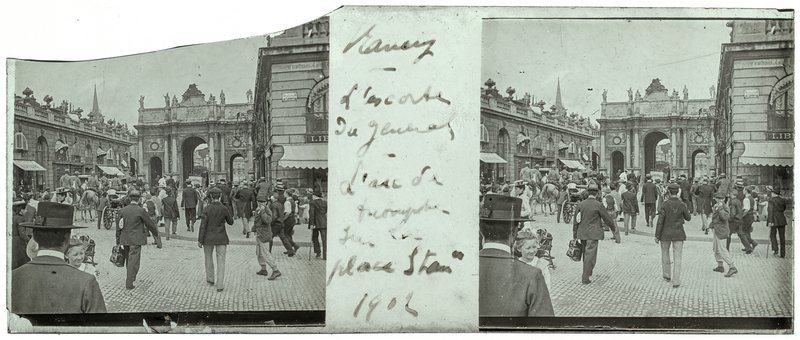 Nancy
L'escorte
du general
L'arc de
triomphe
sur la
place Stan"
1902
LIB
LIBR